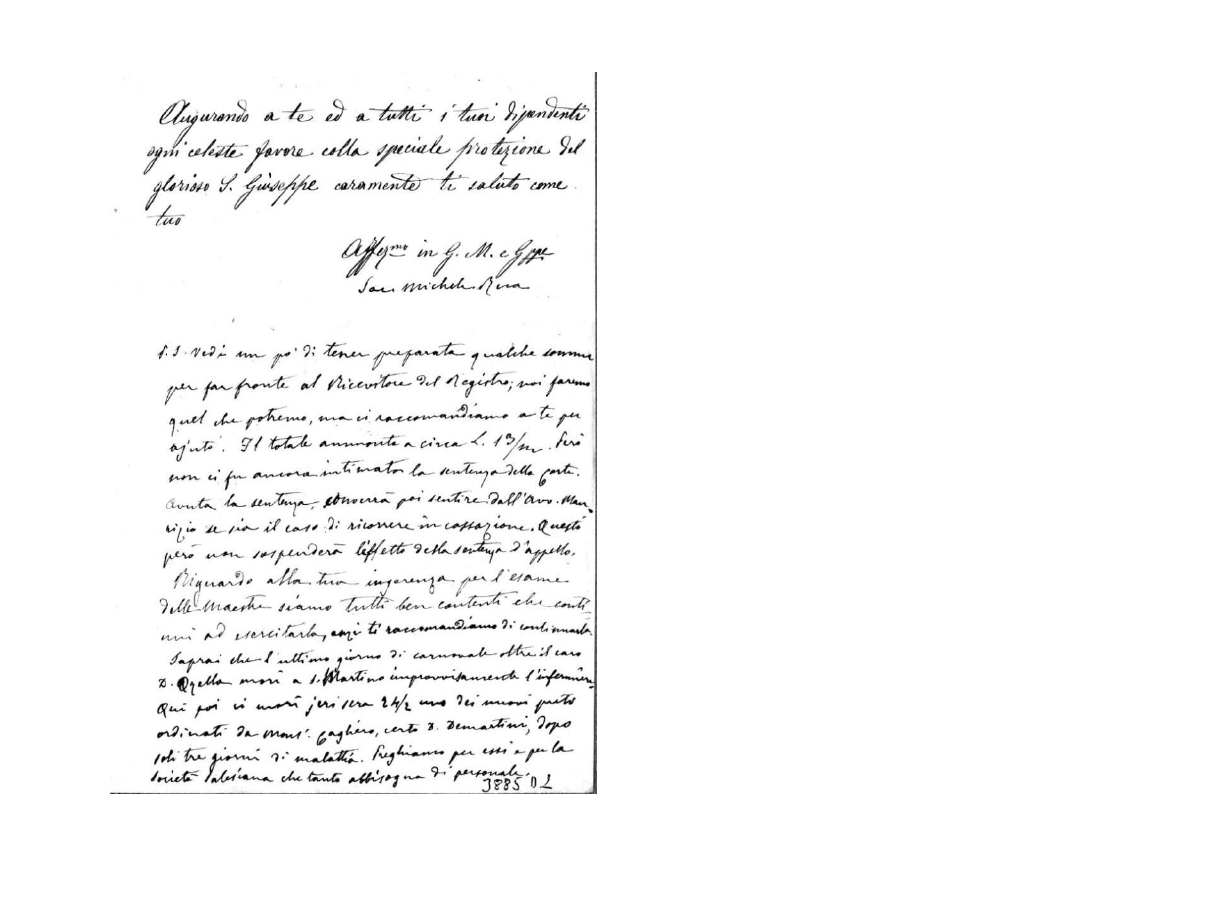 Augurando a te ed a tutti i tuoi dipendenti
ogni celeste favore colla speciale protezione del
glorioso S. Giuseppe caramente ti saluto come
tuo
Affez.mo in G. M. e Gppe
Sac. Michele Rua
P. S. Vedi un po' di tener preparata qualche somma
per far fronte al Ricevitore del Registro; noi faremo
quel che potremo, ma ci raccomandiamo a te per
ajuto. Il totale ammonta a circa L. 13/m. Però
non ci fu ancora intimata la sentenza della Corte.
Avuta la sentenza, converrà poi sentire dall'Avv. Mau-
rizio se sia il caso di ricorrere in cassazione. Questo
però non sospenderà l'effetto della sentenza d'appello.
Riguardo alla tua ingerenza per l'esame
delle Maestre siamo tutti ben contenti che conti-
nui ad esercitarla, anzi ti raccomandiamo di continuarla.
Saprai che l'ultimo giorno di carnovale oltre il caro
D. morì a S. Martino improvvisamente l'infermiere.
Qui poi ci morì jeri sera 24/2 uno dei nuovi preti
ordinati da Mons.r Cagliero, certo D. Demartini, dopo
soli tre giorni di malattia. Preghiamo per essi e per la
Società Salesiana che tanto abbisogna di personale.
3885 D L